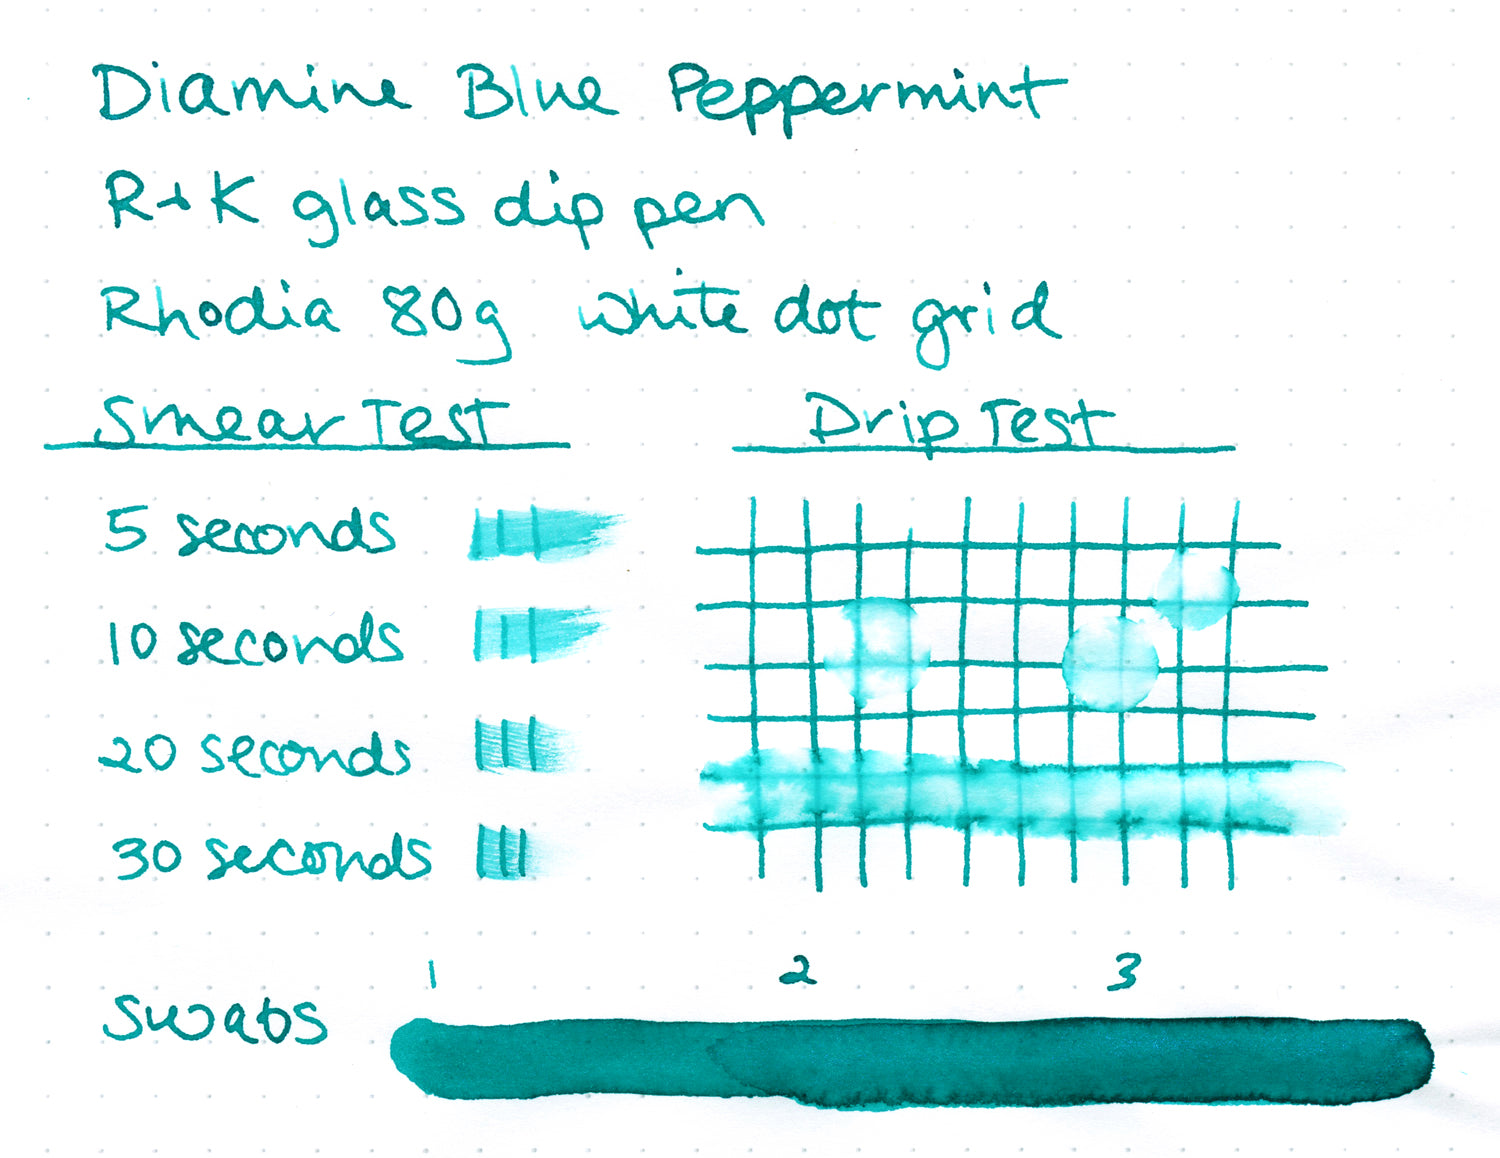 Diamine Blue Peppermint
R+K glass dip pen
Rhodia 80g white dot grid
Smear Test
Drip Test
5 seconds
10 seconds
20 seconds
30 seconds
1 2 3
Swabs